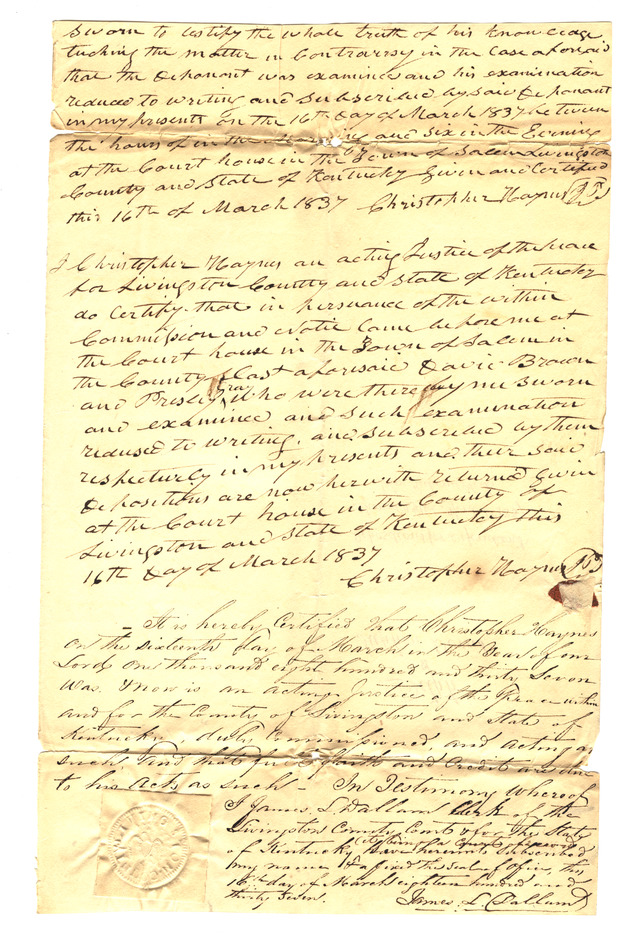 sworn to testify the whole truth of his knowledge
tuching the matter in Contrarrsy in the Case aforsaid
that the deponant was examined and his examination
reduced to writing and subscribed by said deponant
in my presents on the 16th day of March 1837 between
the hours of in the and six in the Evening
at the Court house in the Town of Salem Livingston
County and State of Kentucky Given and Certified
this 16th of March 1837 Christopher Haynes JP
I Christopher Haynes an acting Justice of the peace
for Livingston County and State of Kentucky
do Certify that in persuance of the within
Commission and Notice Came before me at
the Court house in the Town of Salem in
the County Last aforisaid David Brown
and Presley Gray who were there by me sworn
and examined and such examination
redused to writing, and subscribed by them
respecturly in my presents and their said
depositions are now herwith returned Givin
at the Court house in the County of
Livingston and State of Kentucky this
16th day of March 1837
Christopher Haynes JP
It is hereby Certified that Christopher Haynes
on the sixteenth day of March in the Year of our
Lord one thousand eight hundred and thirty Seven
was & now is an acting Justice of the Peace within
and for the County of Livingston and State of
Kentucky, duly Commissioned, and acting as
such and that full faith and Credit are due
to his Acts as such - In Testimony Whereof
I James L. Dallam Clerk of the
Livingston County Court & for the State
of Kentucky have hereunto subscribed
my name & affixed the Seal of Office, this
16th day of March eighteen hundred and
thirty seven.
James L. Dallam